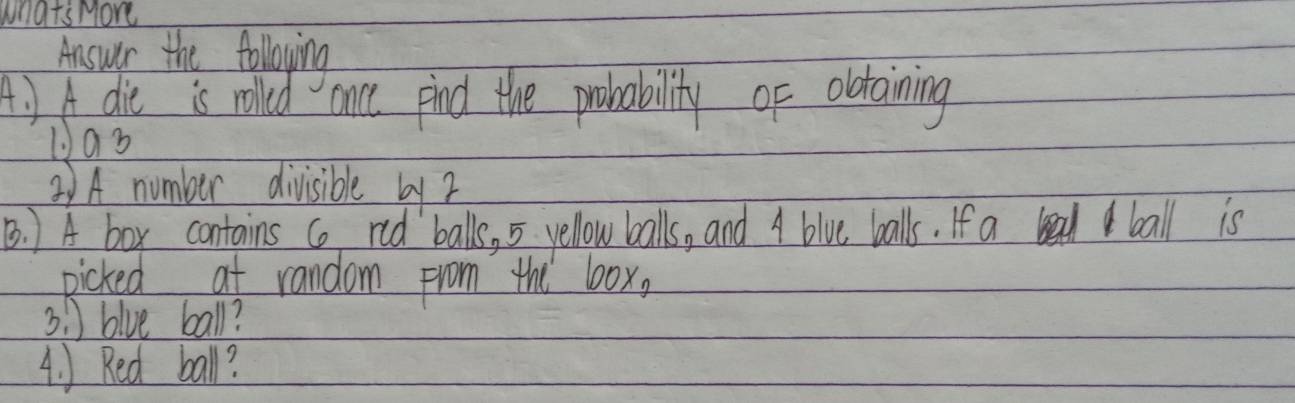 What's More
Answer the following
A.) A die is rolled once find the probability of obtaining
1.) a 3
2.) A number divisible by 2
B.) A box contains 6 red balls, 5 yellow balls, and 4 blue balls. If a ball is
picked at random from the box,
3.) blue ball?
4.) Red ball?